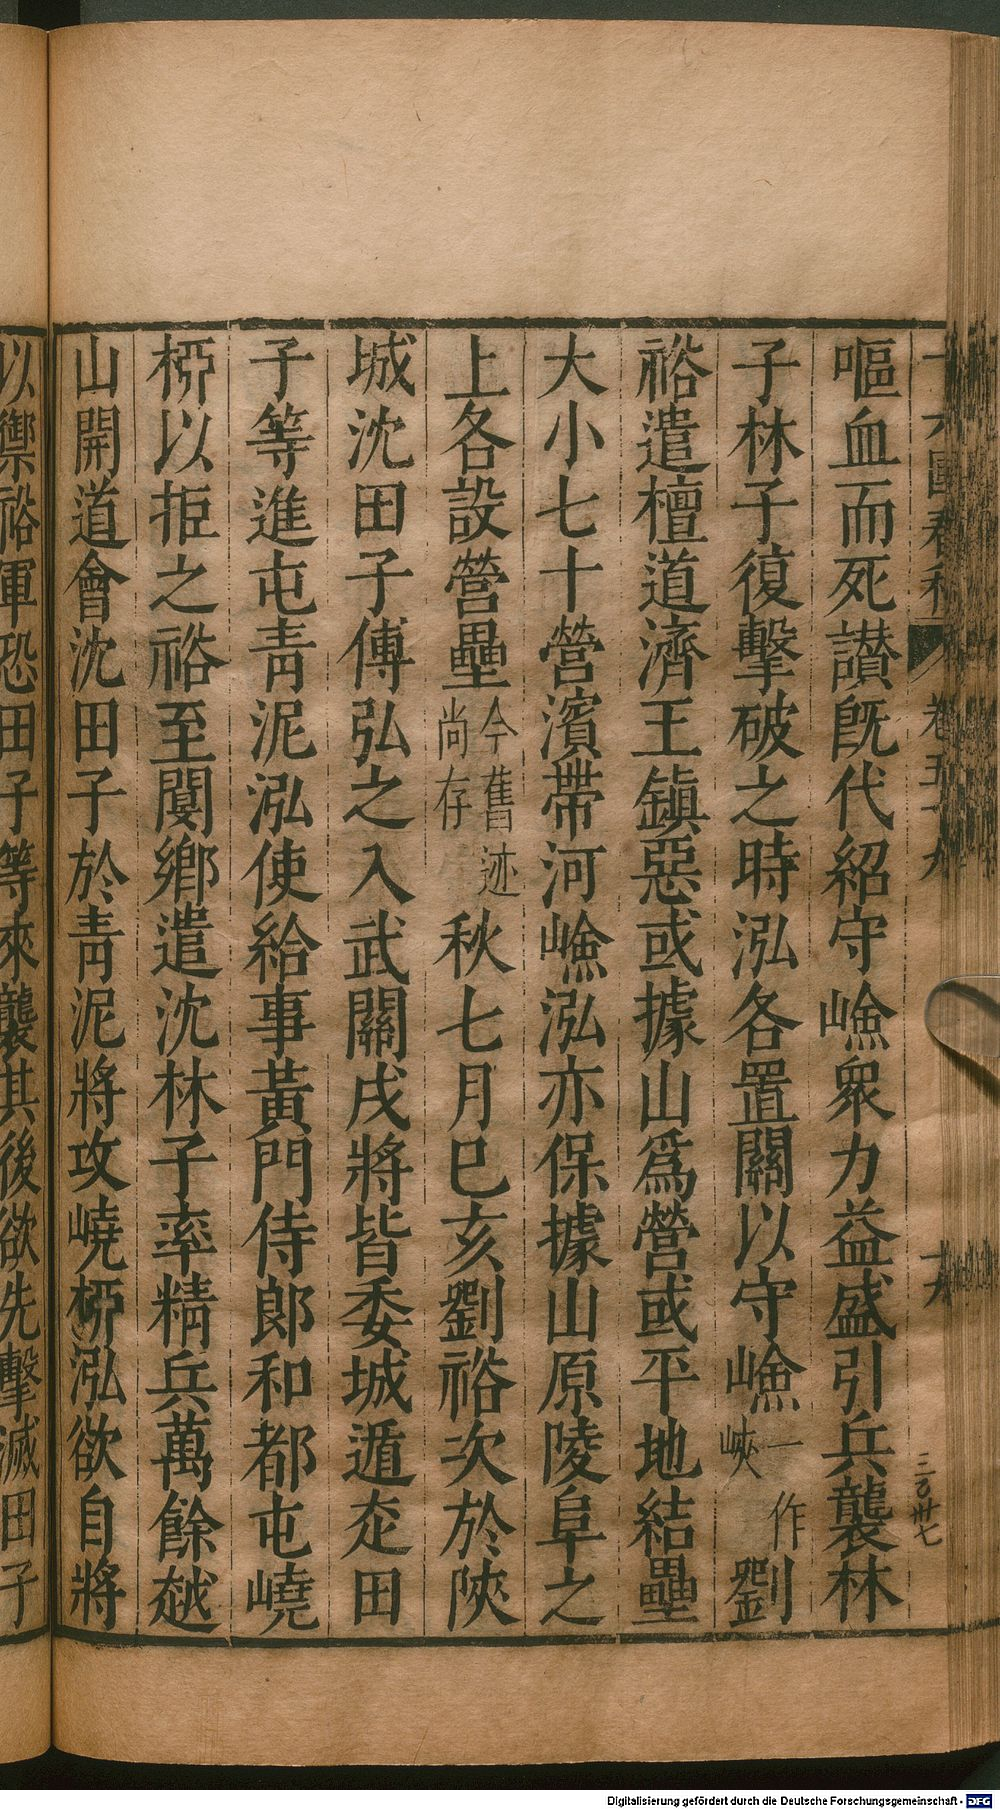 嘔血而死讃旣代紹守嶮衆力益盛引兵襲林
子林子復擊破之時泓各置關以守嶮一作峽劉
裕遣檀道濟王鎭惡或據山爲營或平地結壘
大小七十營濱帶河嶮泓亦保據山原陵阜之
上各設營壘今舊迹尚存秋七月巳亥劉裕次於陜
城沈田子傅弘之入武關戍將皆委城遁走田
子等進屯青泥泓使給事黃門侍郎和都屯嶢
桞以拒之裕至閿鄉遣沈林子率精兵萬餘越
山開道會沈田子於青泥將攻嶢桞泓欲自將
以禦裕軍恐田子等來襲其後欲先擊滅田子
十六國春秋 卷五十九 十九
三百卅七
Digitalisierung gefördert durch die Deutsche Forschungsgemeinschaft - DFG